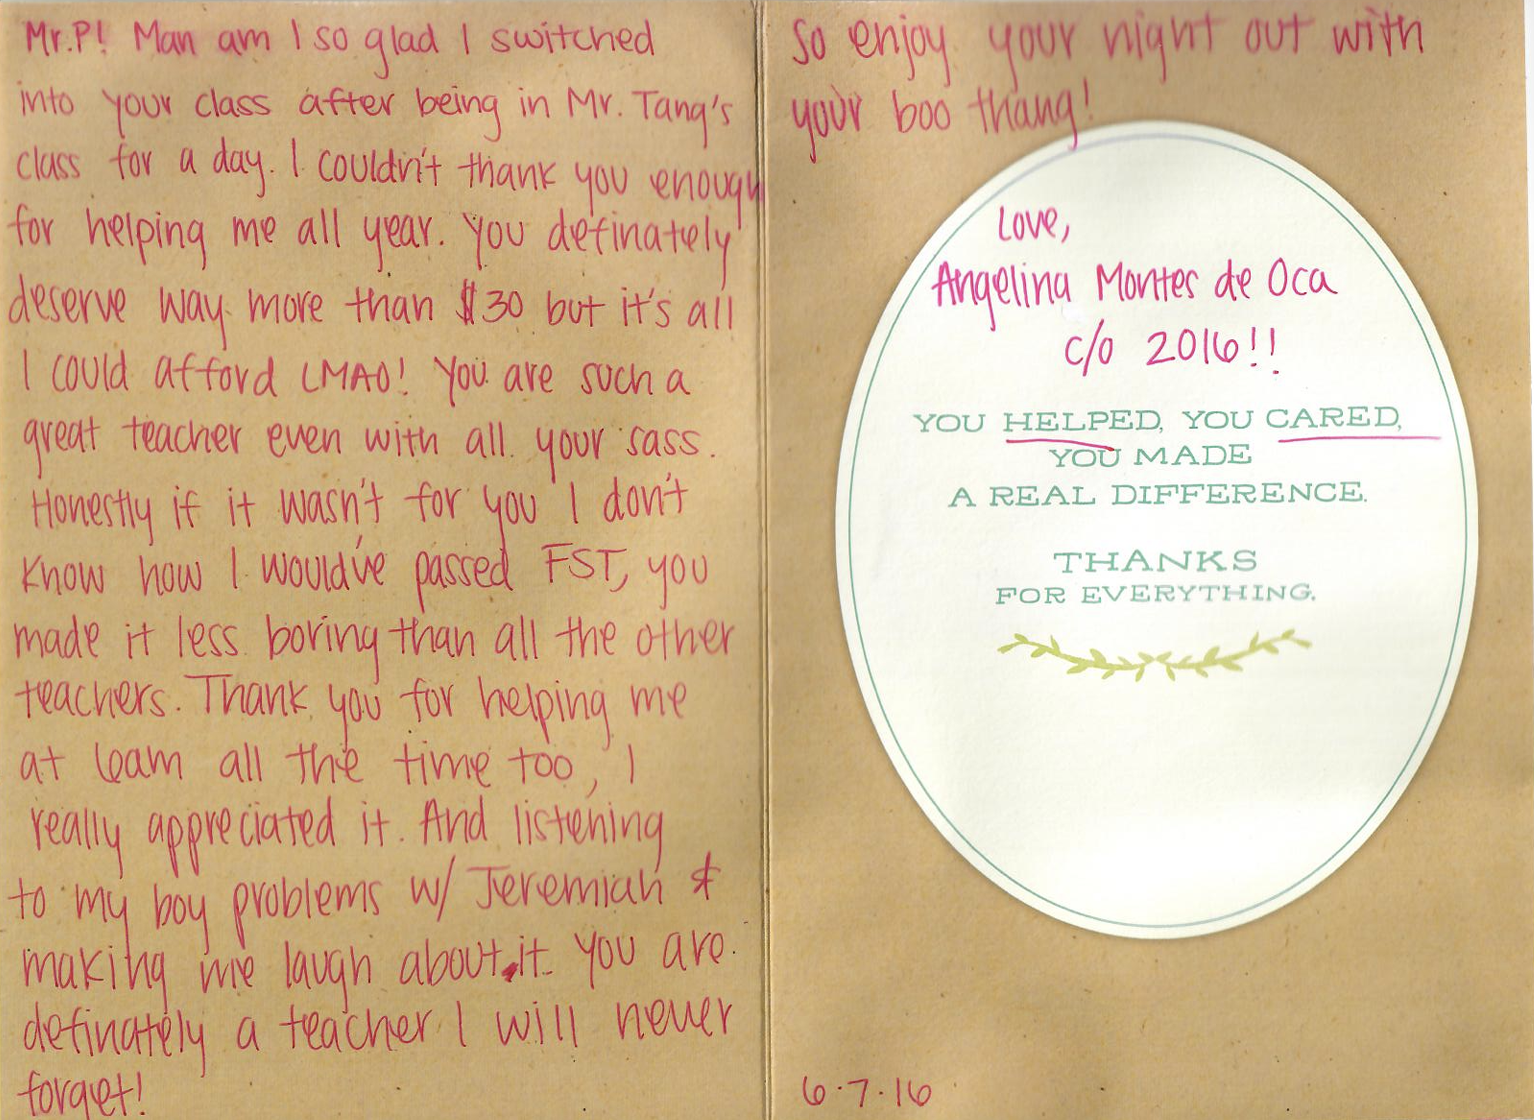 Mr.P! Man am I so glad I switched
into your class after being in Mr. Tang's
class for a day. I couldn't thank you enough
for helping me all year. You definately
deserve way more than $30 but it's all
I could afford LMAO! You are such a
great teacher even with all your sass.
Honestly if it wasn't for you I don't
know how I would've passed FST, you
made it less boring than all the other
teachers. Thank you for helping me
at 6am all the time too, I
really appreciated it. And listening
to my boy problems w/ Jeremiah &
making me laugh about it. You are
definately a teacher I will never
forget!
So enjoy your night out with
your boo thang!
Love,
Angelina Montes de Oca
c/o 2016!!
YOU HELPED, YOU CARED,
YOU MADE
A REAL DIFFERENCE.
THANKS
FOR EVERYTHING.
6.7.16